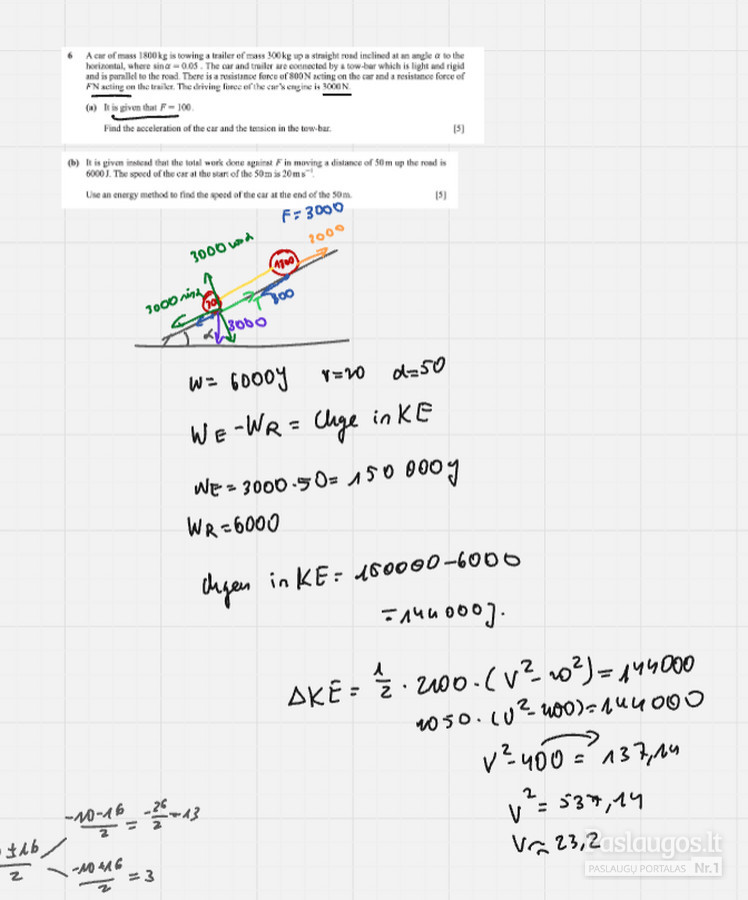 6 A car of mass 1800 kg is towing a trailer of mass 300 kg up a straight road inclined at an angle α to the
horizontal, where sin α = 0.05. The car and trailer are connected by a tow-bar which is light and rigid
and is parallel to the road. There is a resistance force of 800 N acting on the car and a resistance force of
F N acting on the trailer. The driving force of the car's engine is 3000 N.
(a) It is given that F = 100.
Find the acceleration of the car and the tension in the tow-bar. [5]
(b) It is given instead that the total work done against F in moving a distance of 50 m up the road is
6000 J. The speed of the car at the start of the 50 m is 20 m s⁻¹.
Use an energy method to find the speed of the car at the end of the 50 m. [5]
F = 3000
3000
3000
1800
3000
T 800
α 3000
W = 6000J v=20 d=50
W_E - W_R = Chge in KE
W_E = 3000 · 50 = 150 000J
W_R = 6000
in KE = 150000 - 6000
= 144000J.
ΔKE = 1/2 · 2100 · (V² - 20²) = 144000
1050 · (V² - 400) = 144000
V² - 400 = 137,14
V² = 537,14
V ≈ 23,2
-10-16/2 = -26/2 = -13
±16/2
-10+16/2 = 3
Paslaugos.lt
PASLAUGŲ PORTALAS Nr.1